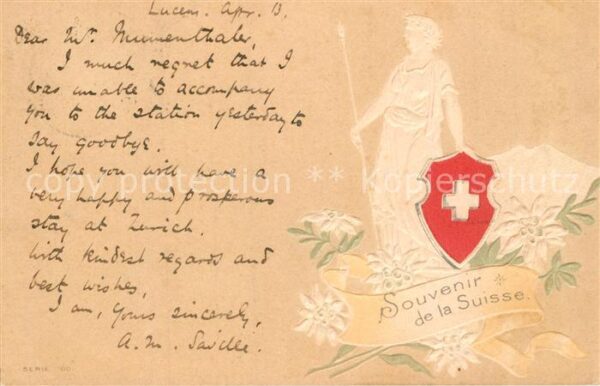 Lucern. Apr. 13.
Dear Mr. Mumenthaler,
I much regret that I
was unable to accompany
you to the station yesterday to
say goodbye.
I hope you will have a
very happy and prosperous
stay at Zurich.
With kindest regards and
best wishes,
I am, yours sincerely,
A. M. Saville.
Souvenir
de la Suisse.
copy protection ** Kopierschutz
SERIE 100